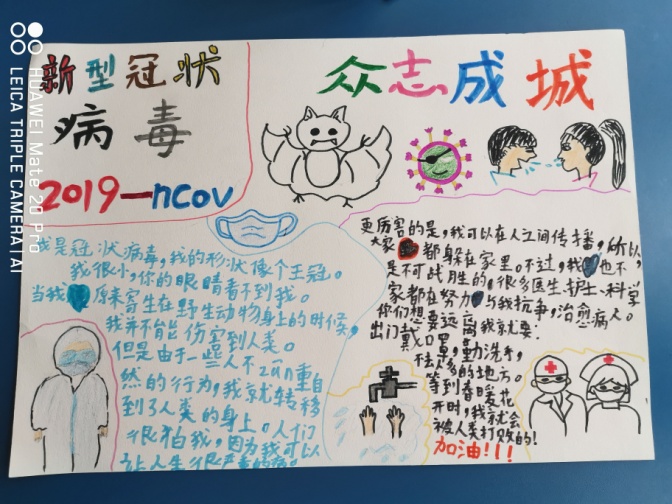 新型冠状
病毒
2019-nCoV
众志成城
我是冠状病毒,我的形状像个王冠。
我很小,你的眼睛看不到我。
当我原来寄生在野生动物身上的时候,
我并不能伤害到人类。
但是由于一些人不zūn重自
然的行为,我就转移
到了人类的身上。人们
很怕我,因为我可以
让人生很严重的病。
更厉害的是,我可以在人之间传播,所以
大家都躲在家里。不过,我也不
是不可战胜的。很多医生、护士、科学
家都在努力与我抗争,治愈病人。
你们想要远离我就要:
出门戴口罩,勤洗手,
不去人多的地方。
等到春暖花
开时,我就会
被人类打败的!
加油!!!
HUAWEI Mate 20 Pro
LEICA TRIPLE CAMERA | AI